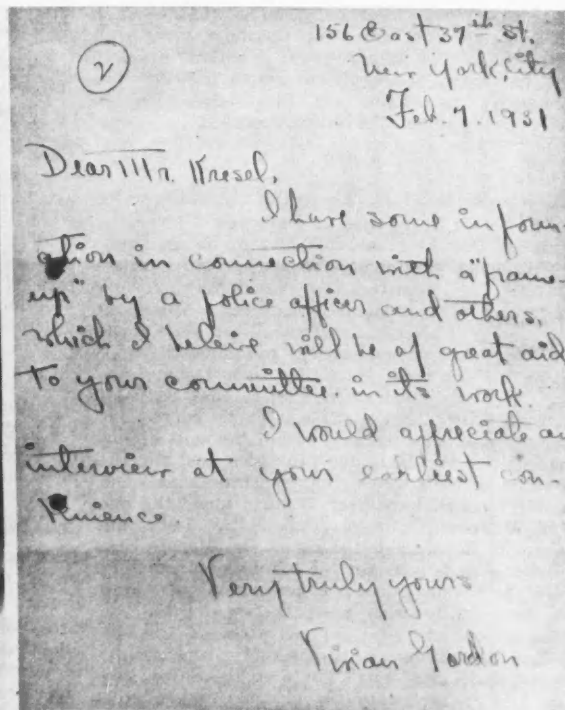 156 East 37th St.
New York, City
Feb. 7. 1931
2
Dear Mr. Kresel,
I have some inform-
ation in connection with a "frame-
up" by a police officer and others,
which I beleive will be of great aid
to your committee. in its work.
I would appreciate an
interview at your earliest con-
venience
Very truly yours
Vivian Gordon